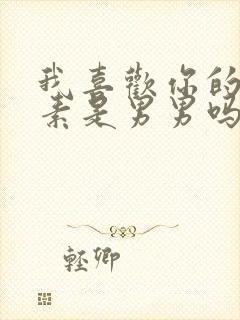 我喜歡你的
素是男男嗎
輕卿